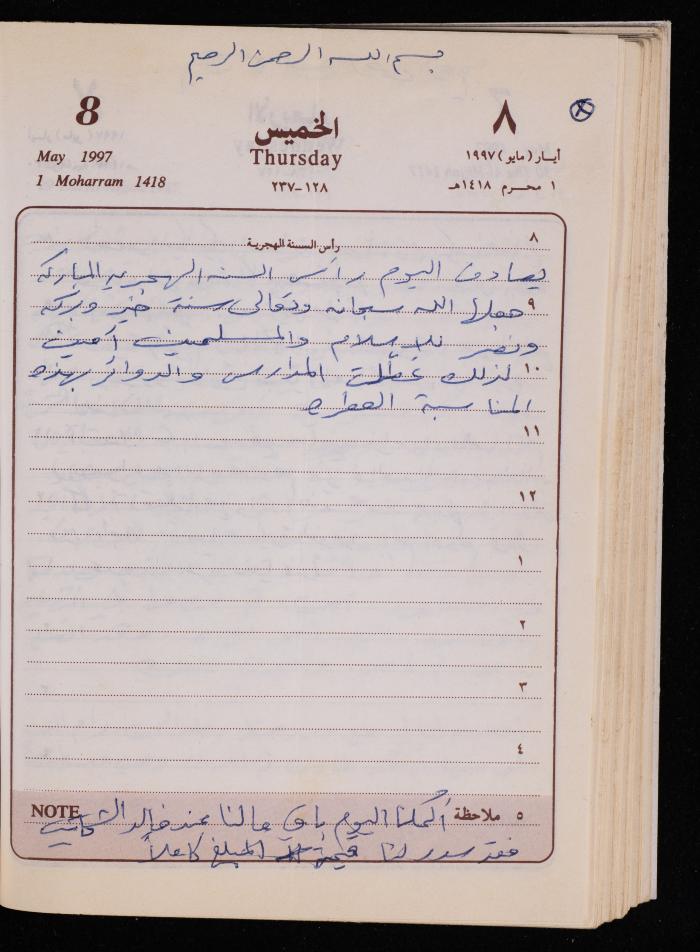 بسم الله الرحمن الرحيم
8 ٨
الخميس
May 1997 Thursday أيار (مايو) ١٩٩٧
1 Moharram 1418 ١٢٨-٢٣٧ ١ محرم ١٤١٨هـ
٨
رأس السنة الهجرية
يصادف اليوم رأس السنه الهجريه المباركه
٩ جعلها الله سبحانه وتعالى سنة خير وبركه
ونصر للإسلام والمسلمين آمين
١٠ لذلك عطلت المدارس والدوائر بهذه
المناسبة العطره
١١
١٢
١
٢
٣
٤
NOTE ٥ ملاحظة أكملنا اليوم باقي مالنا عند خالد
فقد سدد لنا قيمة المبلغ كاملاً